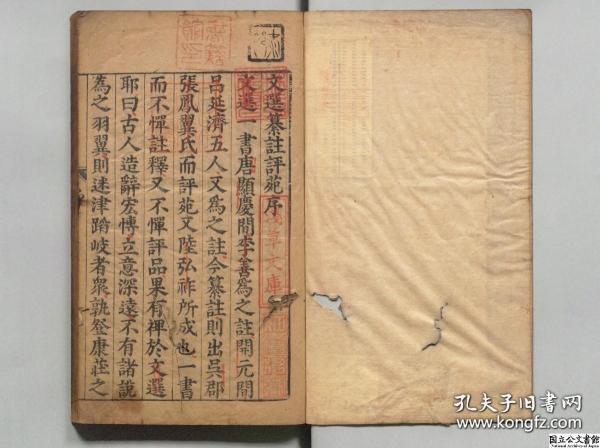 文選纂註評苑序
文選一書唐顯慶間李善爲之註開元間
呂延濟五人又爲之註今纂註則出吳郡
張鳳翼氏而評苑又陸弘祚所成也一書
而不憚註釋又不憚評品果有裨於文選
耶曰古人造辭宏博立意深遠不有諸說
為之羽翼則迷津踏岐者衆孰登康莊之
淺草文庫
孔夫子旧书网
www.kongfz.com
国立公文書館
National Archives of Japan